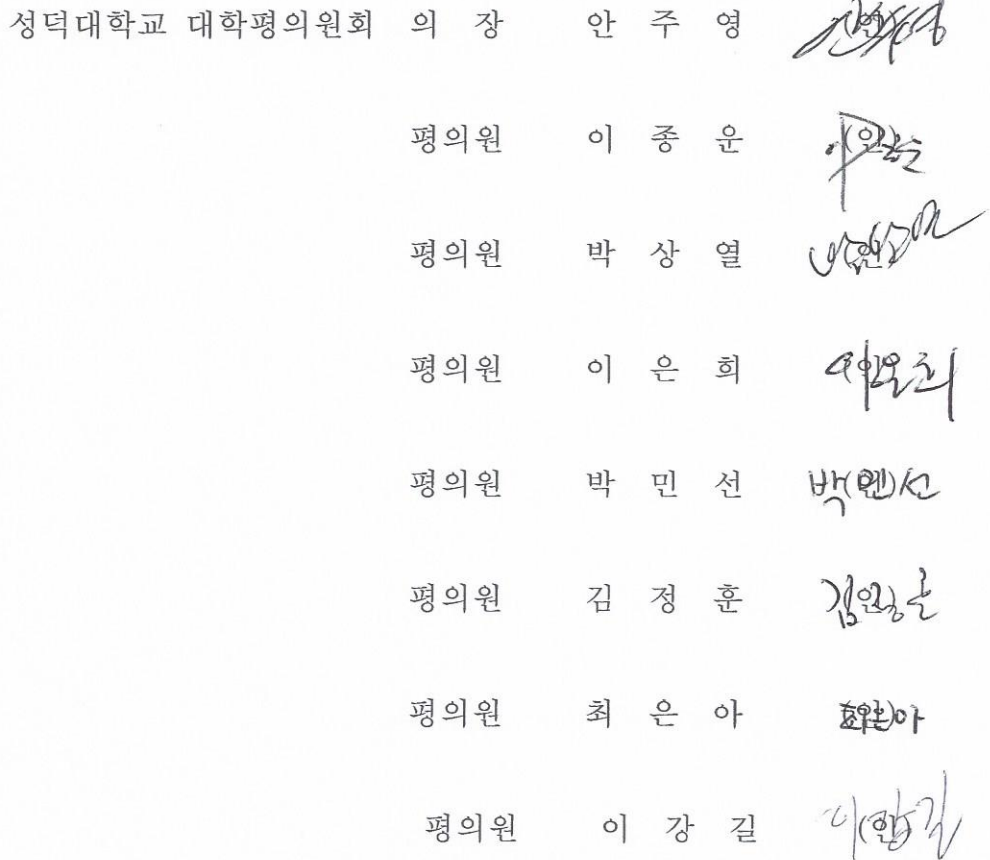 성덕대학교 대학평의원회 의 장 안 주 영 (인)
평의원 이 종 운 (인)
평의원 박 상 열 (인)
평의원 이 은 희 (인)
평의원 박 민 선 (인)
평의원 김 정 훈 (인)
평의원 최 은 아 (인)
평의원 이 강 길 (인)